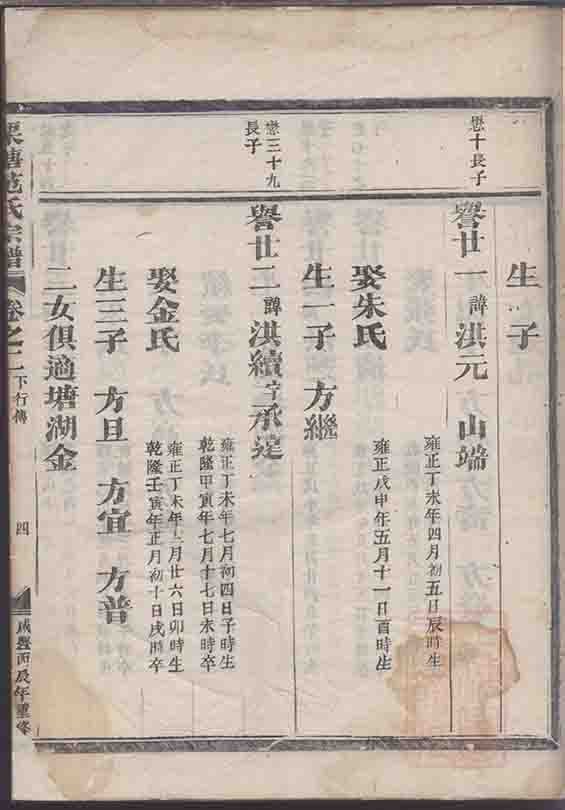 生 子
懋十長子
譽廿一 諱 洪元 山端
雍正丁未年四月初五日辰時生
娶朱氏
雍正戊申年五月十一日酉時生
生一子 方繼
懋三十九
長子
譽廿二 諱 洪續 字 承達
雍正丁未年七月初四日子時生
乾隆甲寅年七月十七日未時卒
娶金氏
雍正丁未年二月廿六日卯時生
乾隆壬寅年正月初十日戌時卒
生三子 方旦 方宜 方普
二女俱適塘湖金
范氏宗譜 卷之二 下行傳 四 咸豐丙辰年重修